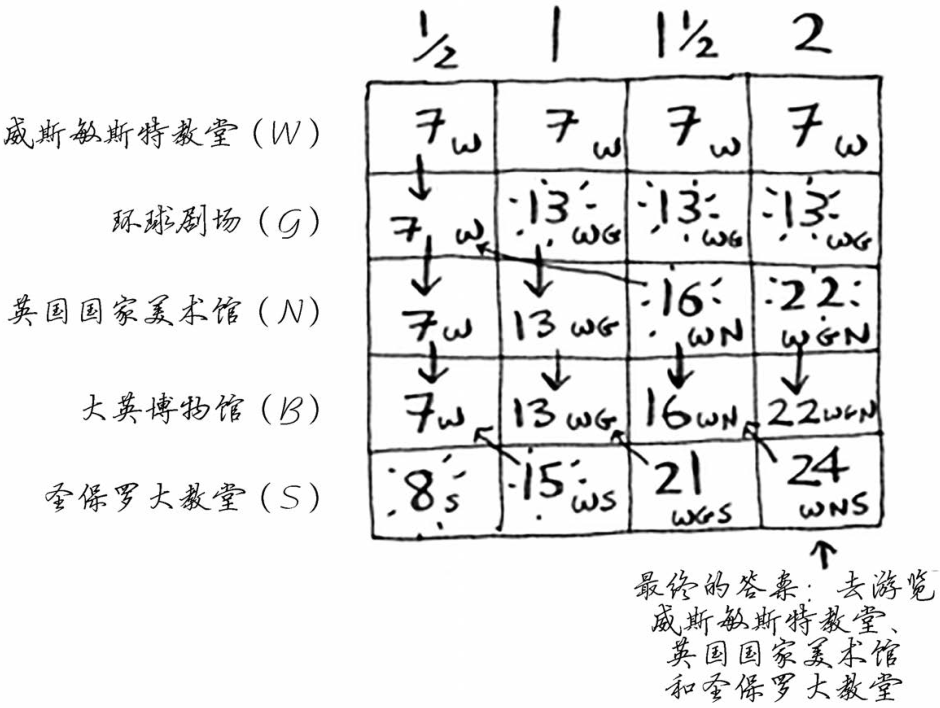 1/2 1 1 1/2 2
威斯敏斯特教堂(W) 7 W 7 W 7 W 7 W
环球剧场(G) 7 W 13 WG 13 WG 13 WG
英国国家美术馆(N) 7 W 13 WG 16 WN 22 WGN
大英博物馆(B) 7 W 13 WG 16 WN 22 WGN
圣保罗大教堂(S) 8 S 15 WS 21 WGS 24 WNS
最终的答案:去游览
威斯敏斯特教堂、
英国国家美术馆
和圣保罗大教堂